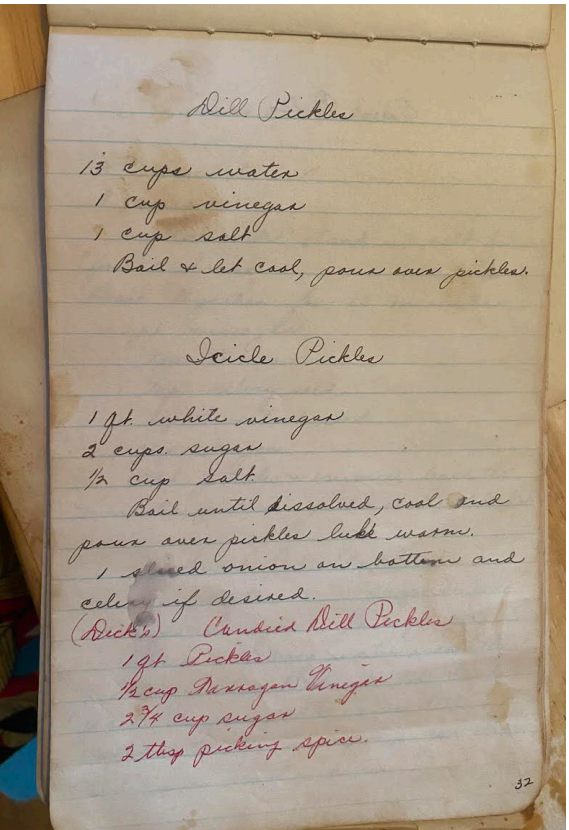 Dill Pickles
13 cups water
1 cup vinegar
1 cup salt
Boil & let cool, pour over pickles.
Icicle Pickles
1 qt. white vinegar
2 cups. sugar
1/2 cup salt.
Boil until dissolved, cool and
pour over pickles luke warm.
1 sliced onion on bottom and
celery if desired.
(Dick's) Candied Dill Pickles
1 qt Pickles
1/2 cup Tarragon Vinegar
2 3/4 cup sugar
2 tbsp picking spice.
32